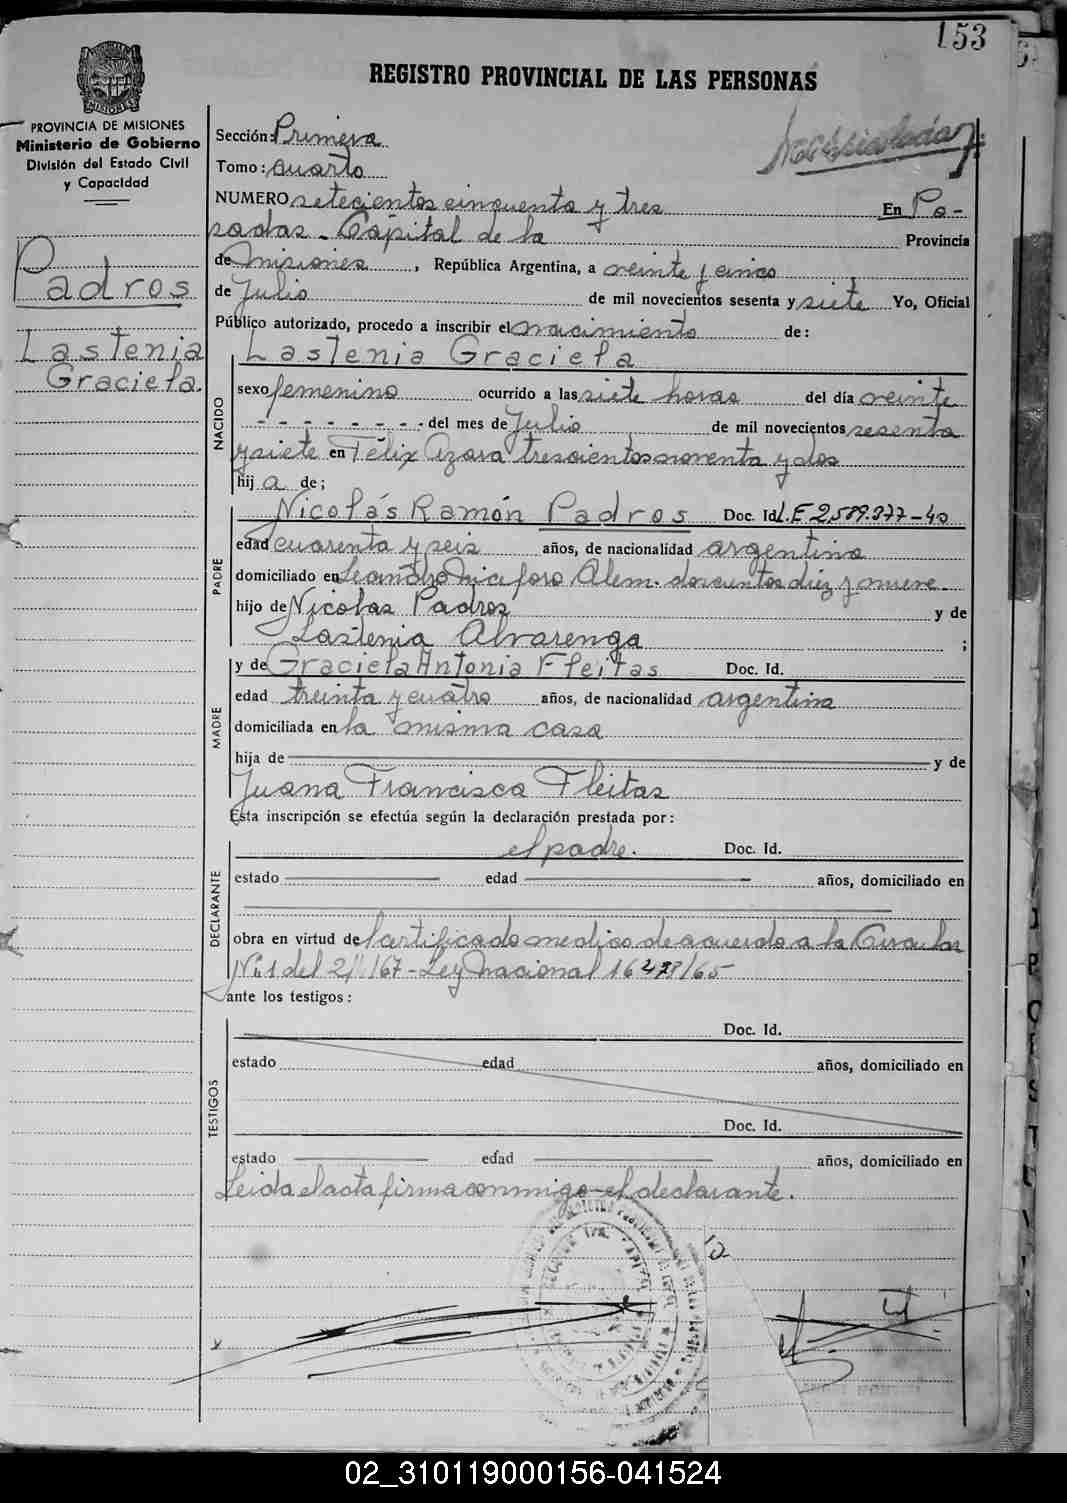 153
REGISTRO PROVINCIAL DE LAS PERSONAS
MISIONES
PROVINCIA DE MISIONES
Ministerio de Gobierno
División del Estado Civil
y Capacidad
Padros
Lastenia
Graciela.
Sección: Primera
Tomo: cuarto
NUMERO setecientos cincuenta y tres En Po-
sadas - Capital de la Provincia
de Misiones, República Argentina, a veinte y cinco
de Julio de mil novecientos sesenta y siete Yo, Oficial
Público autorizado, procedo a inscribir el nacimiento de:
NACIDO
Lastenia Graciela
sexo femenino ocurrido a las siete horas del día veinte
- - - - - - - - del mes de Julio de mil novecientos sesenta
y siete en Félix Azara trescientos noventa y dos
hij a de;
PADRE
Nicolás Ramón Padros Doc. Id. L.E 2,589.377-40
edad cuarenta y seis años, de nacionalidad argentina
domiciliado en Leandro Niceforo Alem. doscientos diez y nueve.
hijo de Nicolas Padros y de
Lastenia Alvarenga ;
MADRE
y de Graciela Antonia Fleitas Doc. Id.
edad treinta y cuatro años, de nacionalidad argentina
domiciliada en la misma casa
hija de y de
Juana Francisca Fleitas
Esta inscripción se efectúa según la declaración prestada por:
DECLARANTE
el padre. Doc. Id.
estado edad años, domiciliado en
obra en virtud de Certificado medico de acuerdo a la Circular
Nº 1 del 2/1/67 - Ley Nacional 16478/65-
ante los testigos:
TESTIGOS
Doc. Id.
estado edad años, domiciliado en
Doc. Id.
estado edad años, domiciliado en
Leida el acta firma conmigo el declarante.
02_310119000156-041524